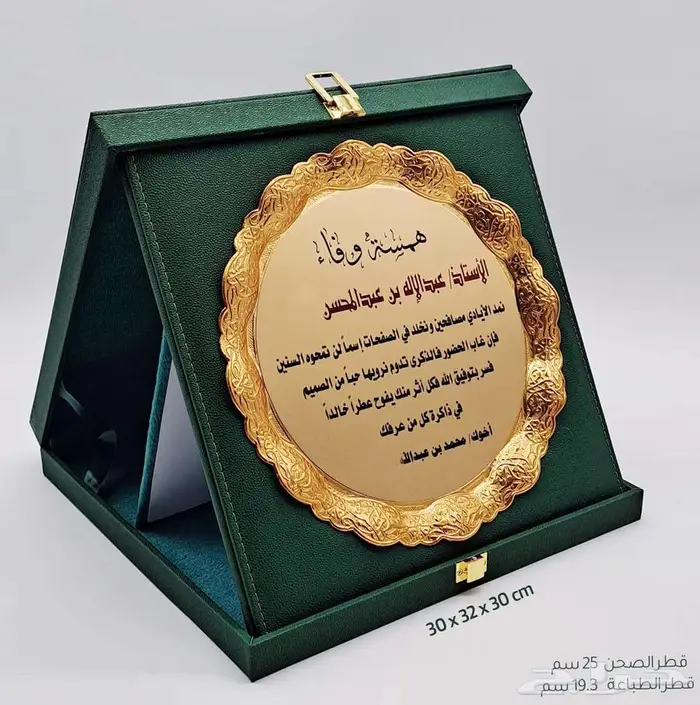 همسة وفاء
الأستاذ/ عبدالإله بن عبدالمحسن
نمد الأيادي مصافحين ونخلد في الصفحات إسماً لن تمحوه السنين
فإن غاب الحضور فالذكرى تدوم نرويها حباً من الصميم
فسر بتوفيق الله فكل أثر منك يفوح عطراً خالداً
في ذاكرة كل من عرفك
أخوك/ محمد بن عبدالله
30 x 32 x 30 cm
قطر الصحن 25 سم
قطر الطباعة 19.3 سم